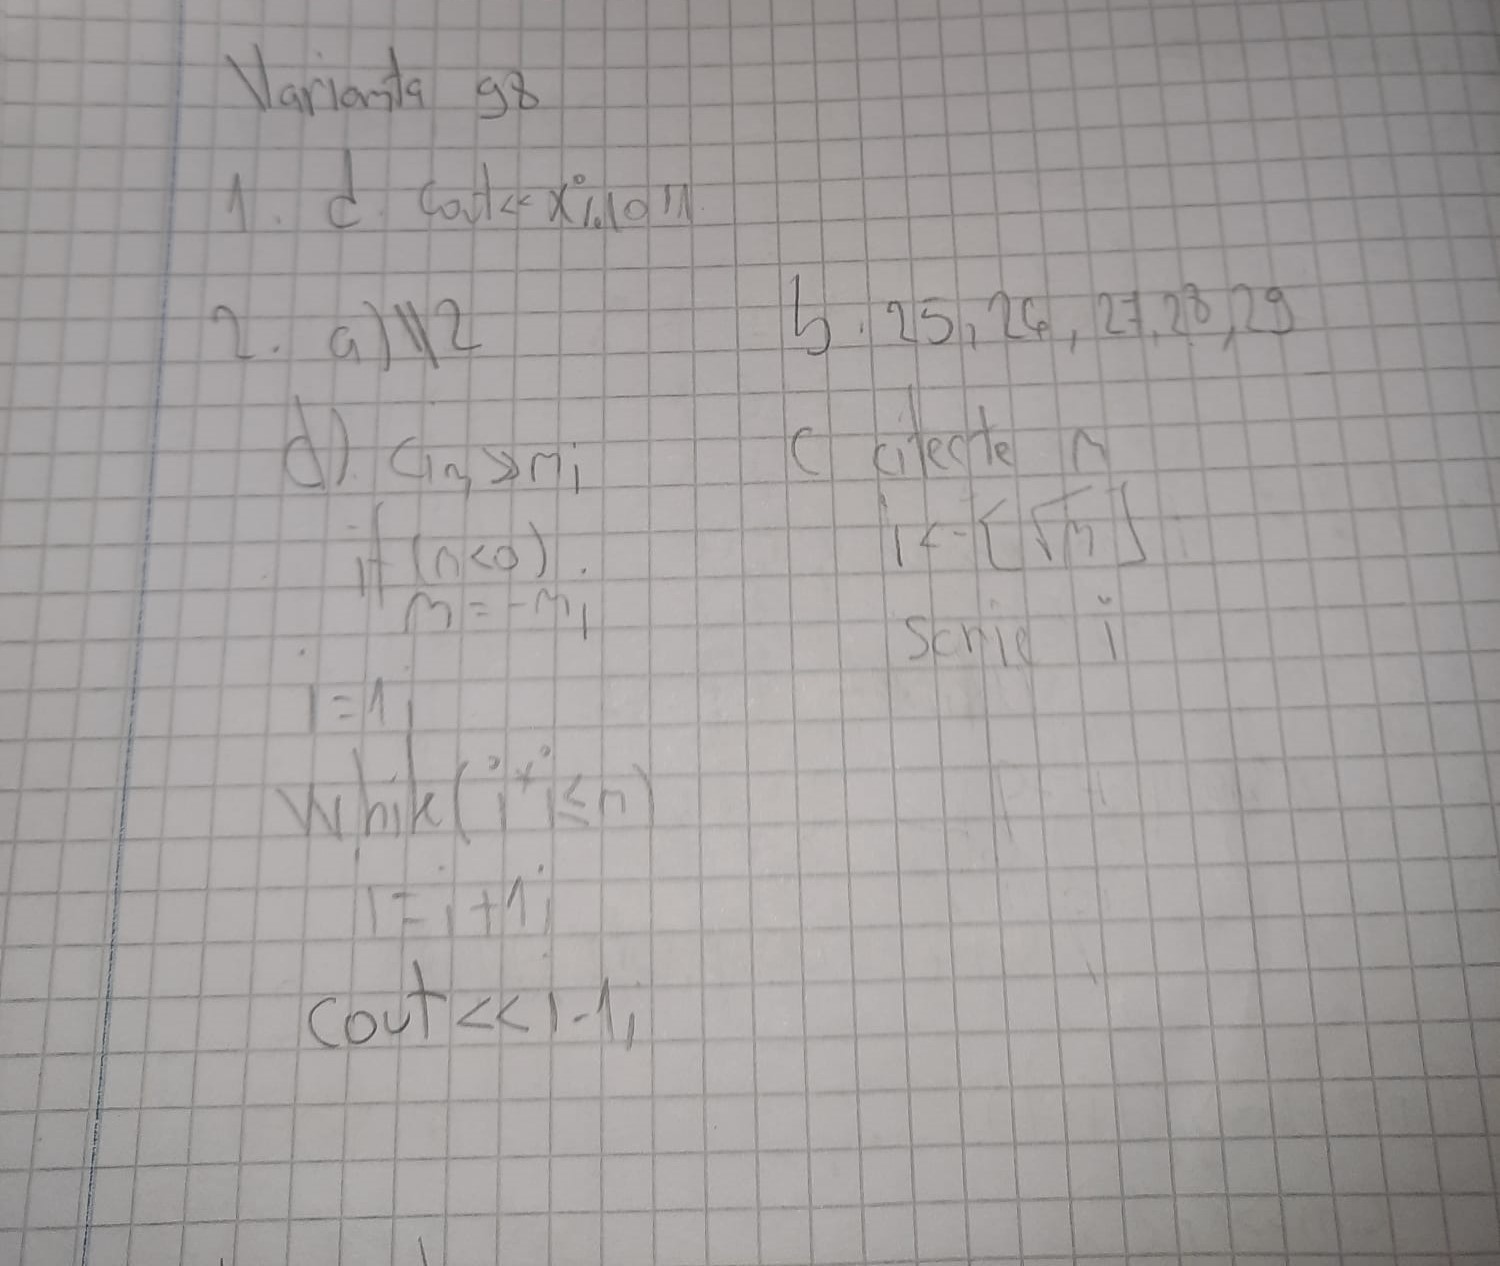 Varianta 98
1. d. cout<<x%10
2. a) 2
b. 25, 26, 27, 28, 29
d) cin>>n;
if (n<0)
n=-n;
i=1;
while(i*i≤n)
i=i+1;
cout<<i-1;
c citeste n
i<-[√n]
scrie i